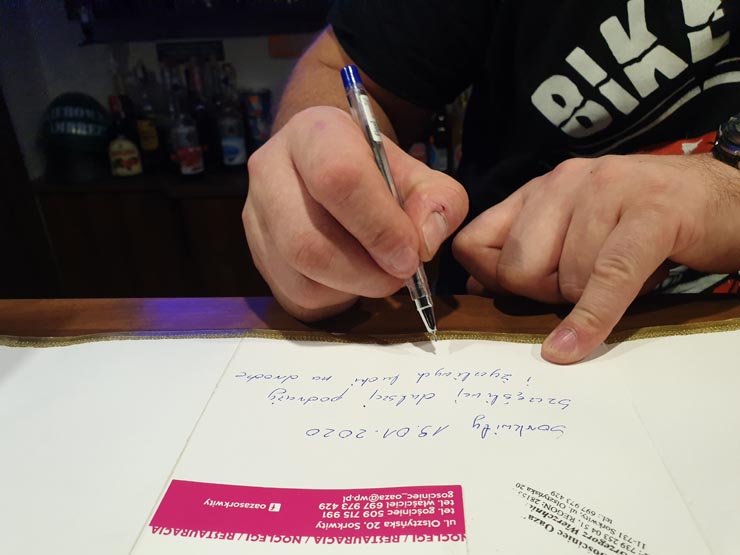 Sorkwity 15.01.2020
Szczęśliwej dalszej podróży
i życzliwych ludzi na drodze
NOCLEGI / RESTAURACJA / NOCLEGI / RESTAURACJA
ul. Olsztyńska 20, Sorkwity
tel. gościniec 509 715 991
tel. właściciel 697 973 429
gosciniec_oaza@wp.pl
f oazasorkwity
Gościniec Oaza
Grzegorz
11-731 Sorkwity, ul. Olsztyńska 20
739 253 04 51, REGON:
tel. 697 973 429